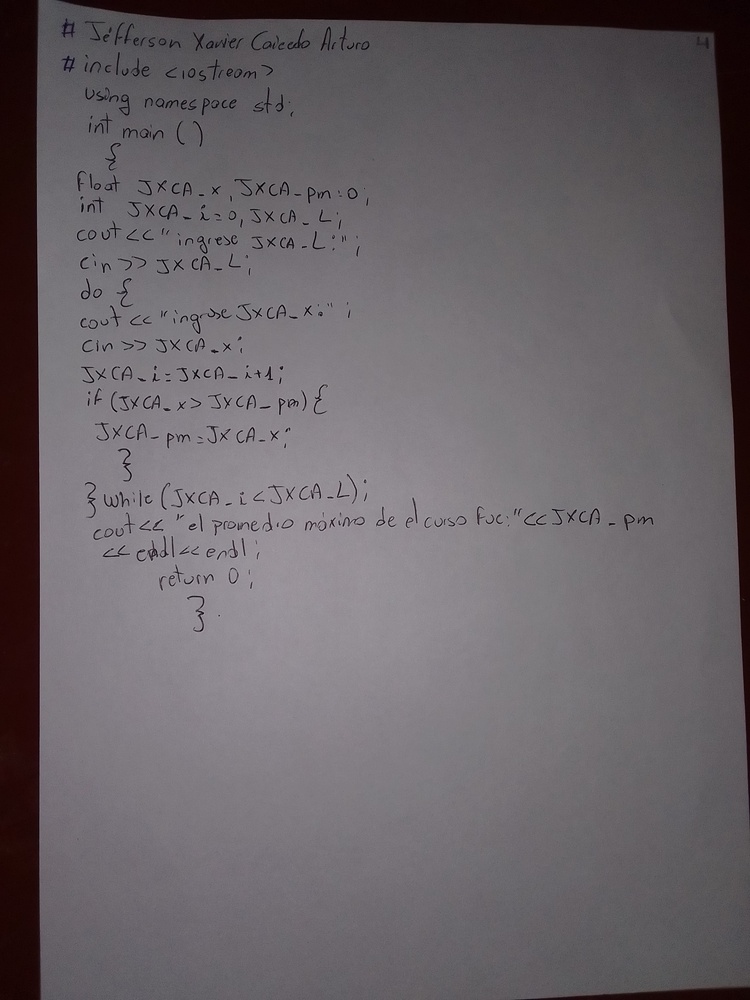 4
# Jefferson Xavier Caicedo Arturo
# include <iostream>
using namespace std;
int main ()
{
float JXCA_x, JXCA_pm=0;
int JXCA_i=0, JXCA_L;
cout << "ingrese JXCA_L:";
cin >> JXCA_L;
do {
cout << "ingrese JXCA_x:";
cin >> JXCA_x;
JXCA_i=JXCA_i+1;
if (JXCA_x > JXCA_pm) {
JXCA_pm = JXCA_x;
}
} while (JXCA_i < JXCA_L);
cout << "el promedio máximo de el curso fue:" << JXCA_pm
<< endl << endl;
return 0;
}.